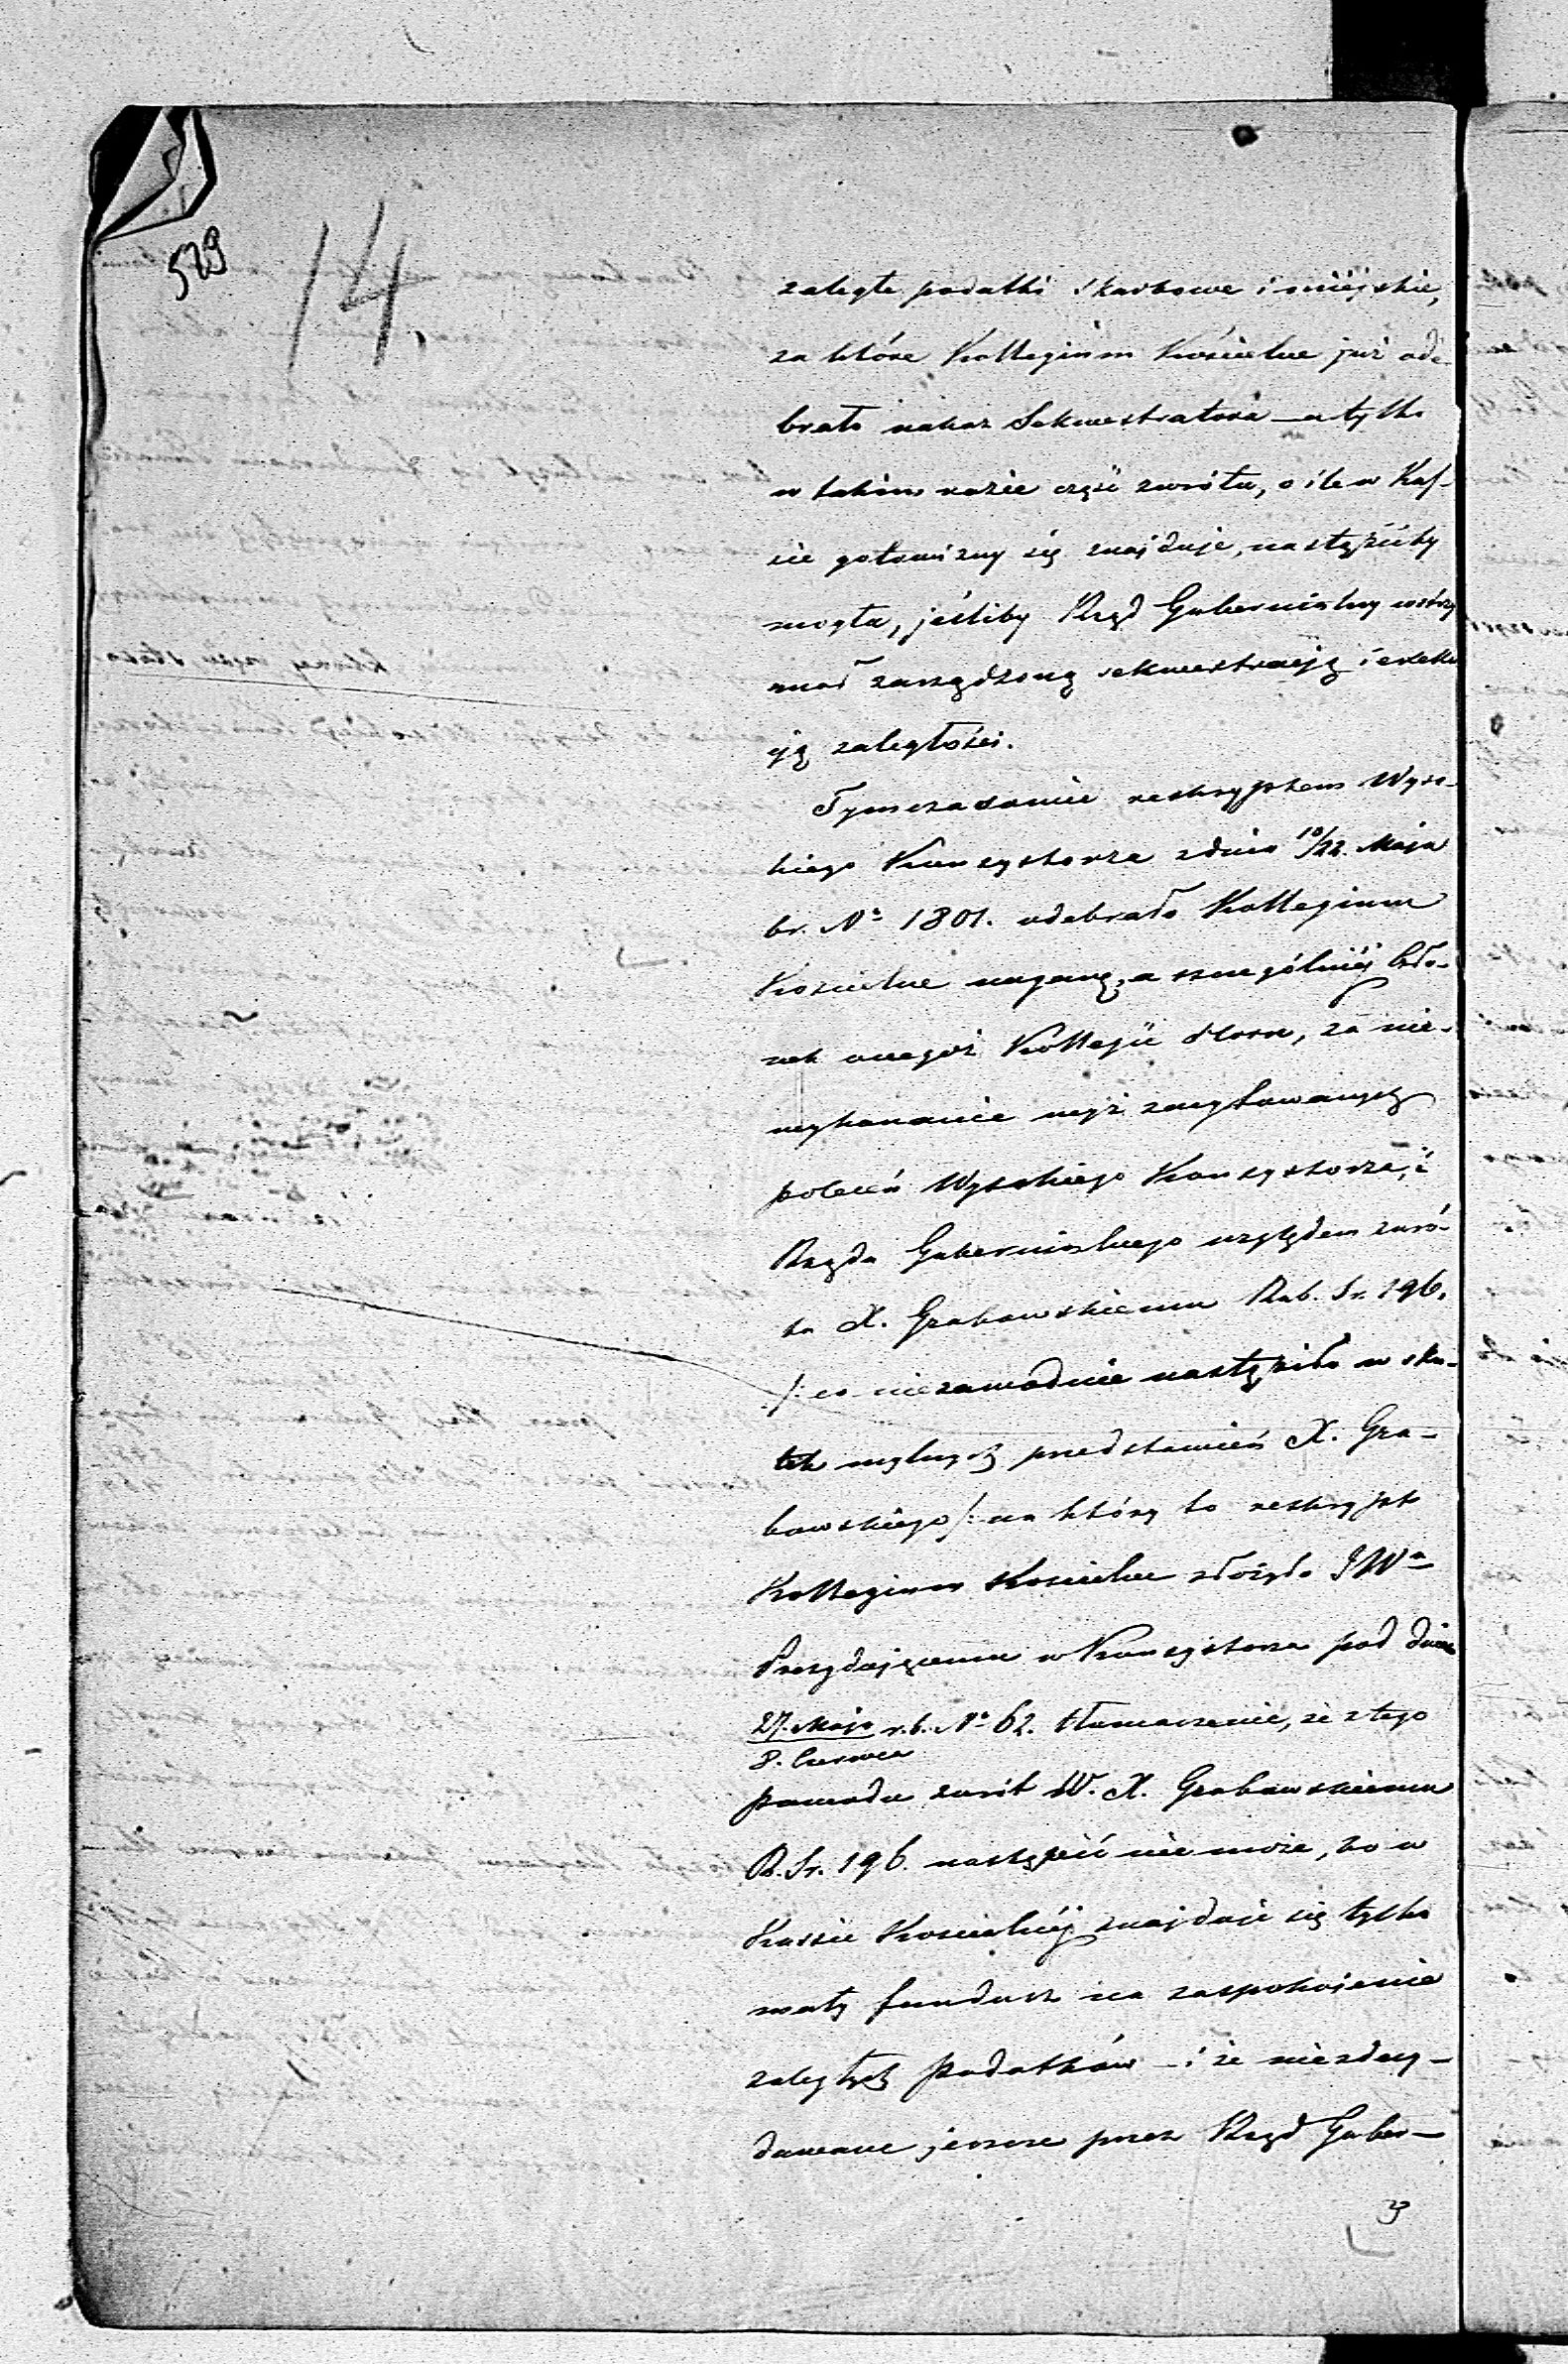 529
14.
zaległe podatki skarbowe i miéjskie,
za które Kollegium Kościelne już ode-
brało nakaz Sekwestratora – a tylko
w takim razie część zwrótu, o ile w Kas-
sie gotowizny się znajduje, nastąpićby
mogła, jeśliby Rząd Gubernialny wstrzy
mał zarządzoną sekwestracją i exeku
cyją zaległości.
Tymczasowie reskryptem Wyso-
kiego Konsystorza z dnia 10/22. Maja
br. Nº 1801. odebrało Kollegium
Kościelne naganę, a szczególniéj Czło-
nek onegoż Kollegii Horn, za nie-
wykonanie wyż zacytowanych
poleceń Wysokiego Konsystorza, i
Rządu Gubernialnego względem zwró-
tu X. Grabowskiemu Rub. Sr. 196.
/: co niezawodnie nastąpiło w sku-
tek mylnych przedstawień X. Gra-
bowskiego /: na który to reskrypt
Kollegium Kościelne złożyło JWº
Prezydującemu w Konsystorzu pod dniem
27. Maja r. b. Nº 62. tłumaczenie, że z tego
8. Czerwca
powodu zwrót W. X. Grabowskiemu
R. Sr. 196. nastąpić nie może, bo w
Kassie Kościelnéj znajduje się tylko
mały fundusz na zaspokojenie
zaległych podatków – i że niezdecy-
dowane jeszcze przez Rząd Guber-